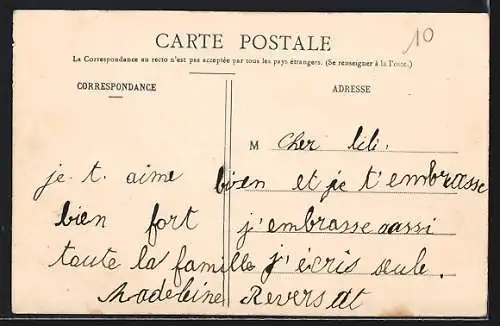 10
CARTE POSTALE
La Correspondance au recto n'est pas acceptée par tous les pays étrangers. (Se renseigner à la Poste.)
CORRESPONDANCE
ADRESSE
M cher lili.
je. t. aime bien et je t'embrasse
bien fort j'embrasse aussi
toute la famille j'écris seule.
Madeleine Reversat